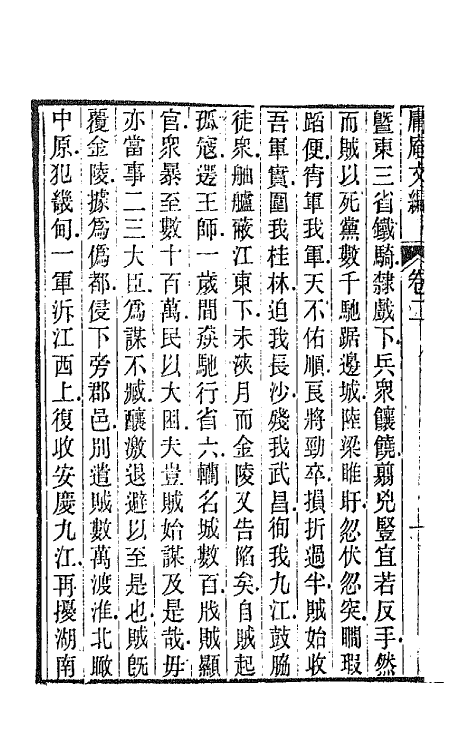 庸庵文編　卷二
曁東三省鐵騎隸戲下兵衆饟饒翦兇豎宜若反手然
而賊以死黨數千馳踞邊城陸梁睢盱忽伏忽突瞷瑕
蹈便徇軍我軍天不佑順良將勁卒損折過半賊始收
吾軍實圍我桂林迫我長沙殘我武昌徇我九江鼓脇
徒衆舳艫蔽江東下未浹月而金陵又告陷矣自賊起
孤寇遻王師一歲間猋馳行省六轥名城數百戕賊顯
官衆暴至數十百萬民以大困夫豈賊始謀及是哉毋
亦當事二三大臣爲謀不臧釀激退避以至是也賊旣
覆金陵據爲僞都侵下旁郡邑別遣賊數萬渡淮北瞰
中原犯畿甸一軍泝江西上復收安慶九江再擾湖南